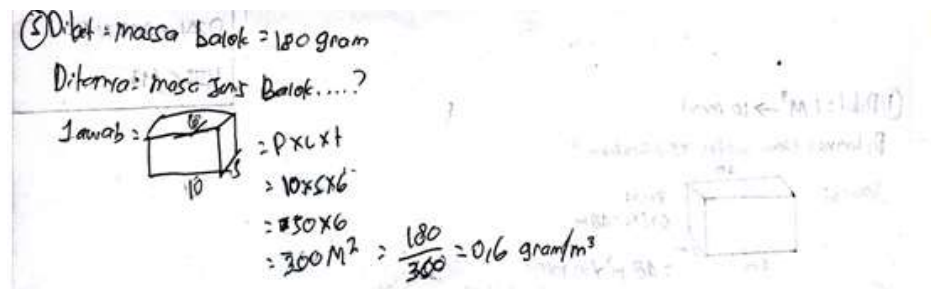 ⑤ Diket : massa balok = 180 gram
Ditanya : masa Jens Balok....?
Jawab :
6
5
10
= P x L x t
= 10x5x6
= 50x6
= 300 M² = 180/300 = 0,6 gram/m³